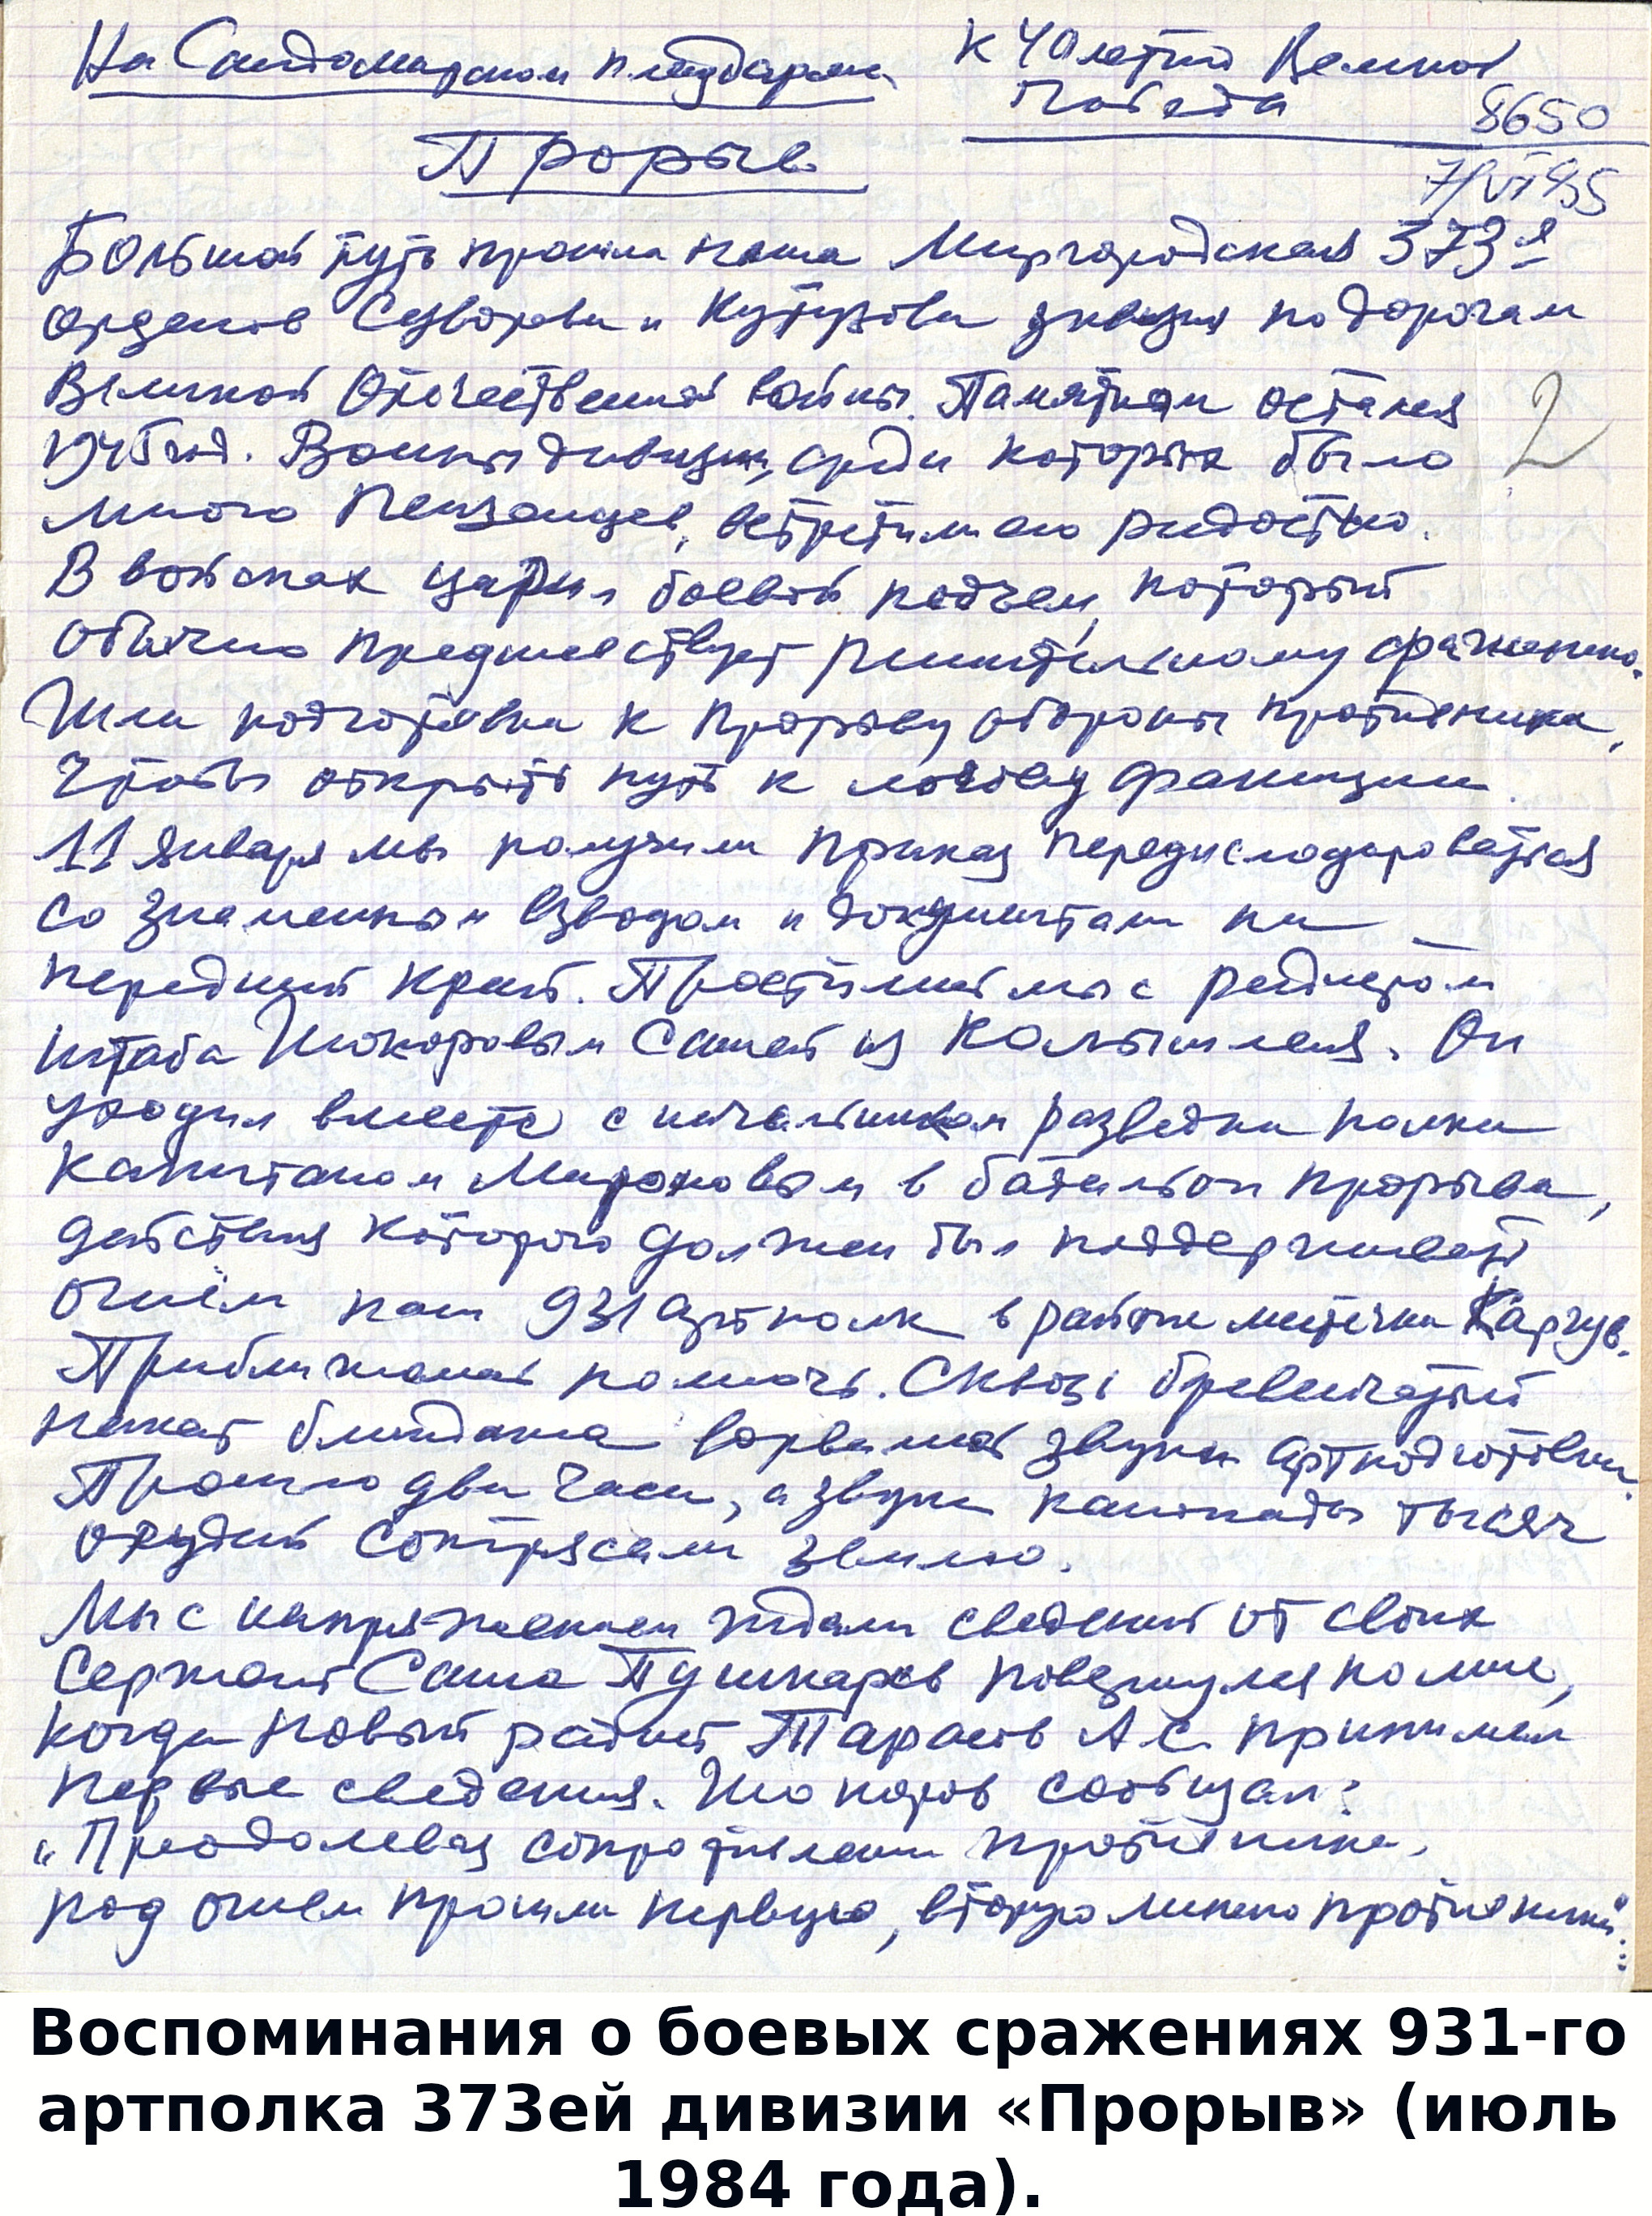 На Сандомирском плацдарме
К 40 летию Великой
Победы
8650
Прорыв
7/VI 85
Большой путь прошла наша Миргородская 373-я
орденов Суворова и Кутузова дивизия по дорогам
Великой Отечественной войны. Памятным остался
1945 год. Воины дивизии, среди которых было
2
много Пензенцев, встретили его радостью.
В войсках царил боевой подъем, который
обычно предшествует решительному сражению.
Шла подготовка к прорыву обороны противника,
чтобы открыть путь к логову фашизма.
11 января мы получили приказ передислоцироваться
со знаменным взводом и документами на
передний край. Простились мы с радистом
штаба Шокоровым Сашей из Колышлея. Он
уходил вместе с начальником разведки полка
капитаном Мироновым в батальон прорыва,
действия которого должен был поддерживать
огнём наш 931 артполк в районе местечка Каргув.
Приближалась полночь. Сквозь бревенчатый
накат блиндажа ворвались звуки артподготовки.
Прошло два часа, а звуки канонады тысяч
орудий сотрясали землю.
Мы с напряжением ждали сведений от своих
Сержант Саша Пушкарев повернулся ко мне,
когда новый радист Тарасов А.С. принимал
первые сведения. Шокоров сообщал:
„Преодолевая сопротивление противника,
под огнем прошли первую, вторую линию противника"...
Воспоминания о боевых сражениях 931-го
артполка 373ей дивизии «Прорыв» (июль
1984 года).